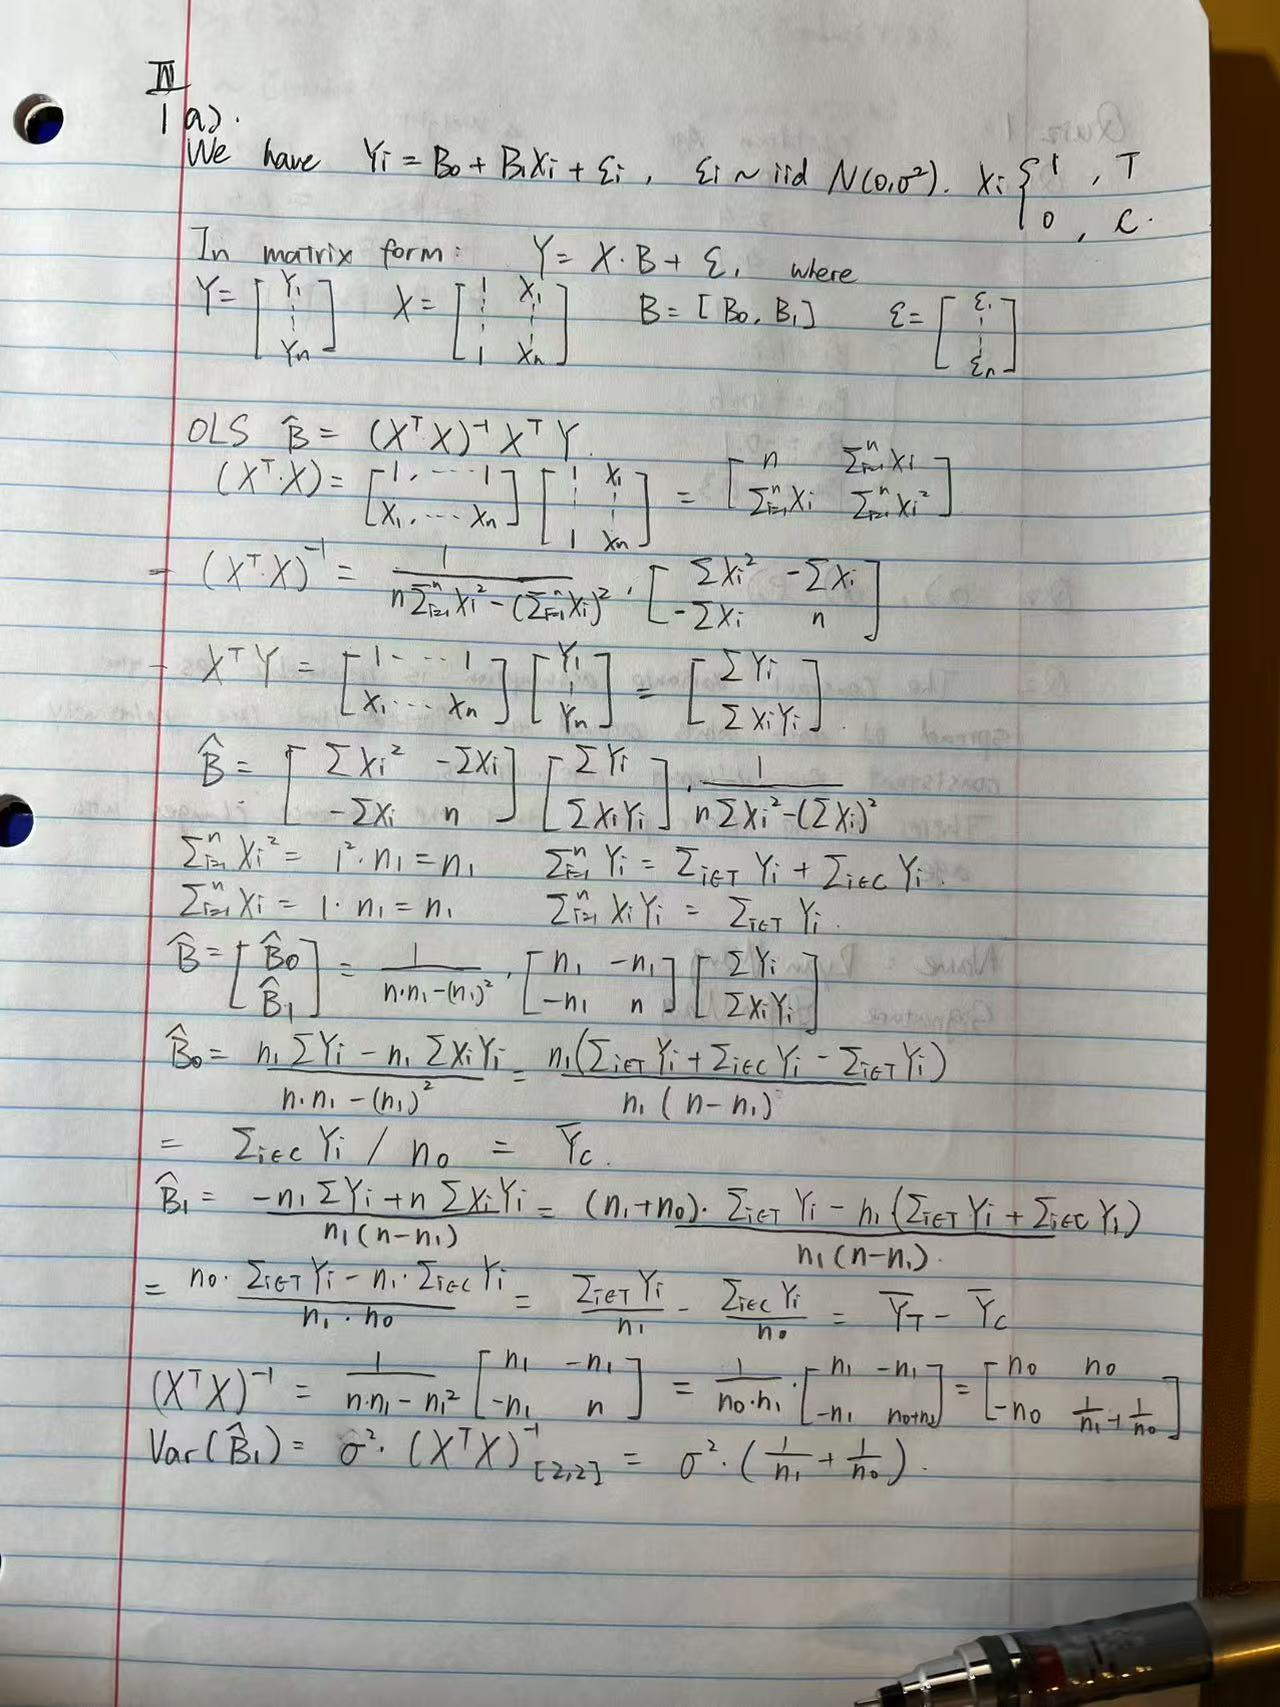 IV
1 a).
We have Yi = B0 + B1Xi + εi, εi ~ iid N(0,σ²). Xi { 1, T
0, C.
In matrix form: Y = X·B + ε, where
Y = [Y1 ⋮ Yn] X = [1 X1 ⋮ ⋮ 1 Xn] B = [B0, B1] ε = [ε1 ⋮ εn]
OLS B̂ = (XᵀX)⁻¹XᵀY.
(Xᵀ·X) = [1, ···· 1 / X1, ···· Xn] [1 X1 ⋮ ⋮ 1 Xn] = [n Σⁿᵢ₌₁Xi / Σⁿᵢ₌₁Xi Σⁿᵢ₌₁Xi²]
- (Xᵀ·X)⁻¹ = 1/(nΣⁿᵢ₌₁Xi² - (Σⁿᵢ₌₁Xi)²) · [ΣXi² -ΣXi / -ΣXi n]
- XᵀY = [1 ··· 1 / X1 ··· Xn] [Y1 ⋮ Yn] = [ΣYi / ΣXiYi].
B̂ = [ΣXi² -ΣXi / -ΣXi n] [ΣYi / ΣXiYi] · 1/(nΣXi² - (ΣXi)²)
Σⁿᵢ₌₁Xi² = 1²·n1 = n1 Σⁿᵢ₌₁Yi = Σi∈T Yi + Σi∈C Yi.
Σⁿᵢ₌₁Xi = 1·n1 = n1 Σⁿᵢ₌₁XiYi = Σi∈T Yi.
B̂ = [B̂0 / B̂1] = 1/(n·n1 - (n1)²) · [n1 -n1 / -n1 n] [ΣYi / ΣXiYi]
B̂0 = (n1ΣYi - n1ΣXiYi)/(n·n1 - (n1)²) = n1(Σi∈T Yi + Σi∈C Yi - Σi∈T Yi)/(n1(n-n1))
= Σi∈C Yi / n0 = Ȳc.
B̂1 = (-n1ΣYi + nΣXiYi)/(n1(n-n1)) = ((n1+n0)·Σi∈T Yi - n1(Σi∈T Yi + Σi∈C Yi))/(n1(n-n1)).
= (n0·Σi∈T Yi - n1·Σi∈C Yi)/(n1·n0) = Σi∈T Yi/n1 - Σi∈C Yi/n0 = ȲT - Ȳc
(XᵀX)⁻¹ = 1/(n·n1 - n1²) [n1 -n1 / -n1 n] = 1/(n0·n1) · [n1 -n1 / -n1 n0+n1] = [n0 n0 / -n0 1/n1 + 1/n0]
Var(B̂1) = σ²·(XᵀX)⁻¹[2,2] = σ²·(1/n1 + 1/n0).